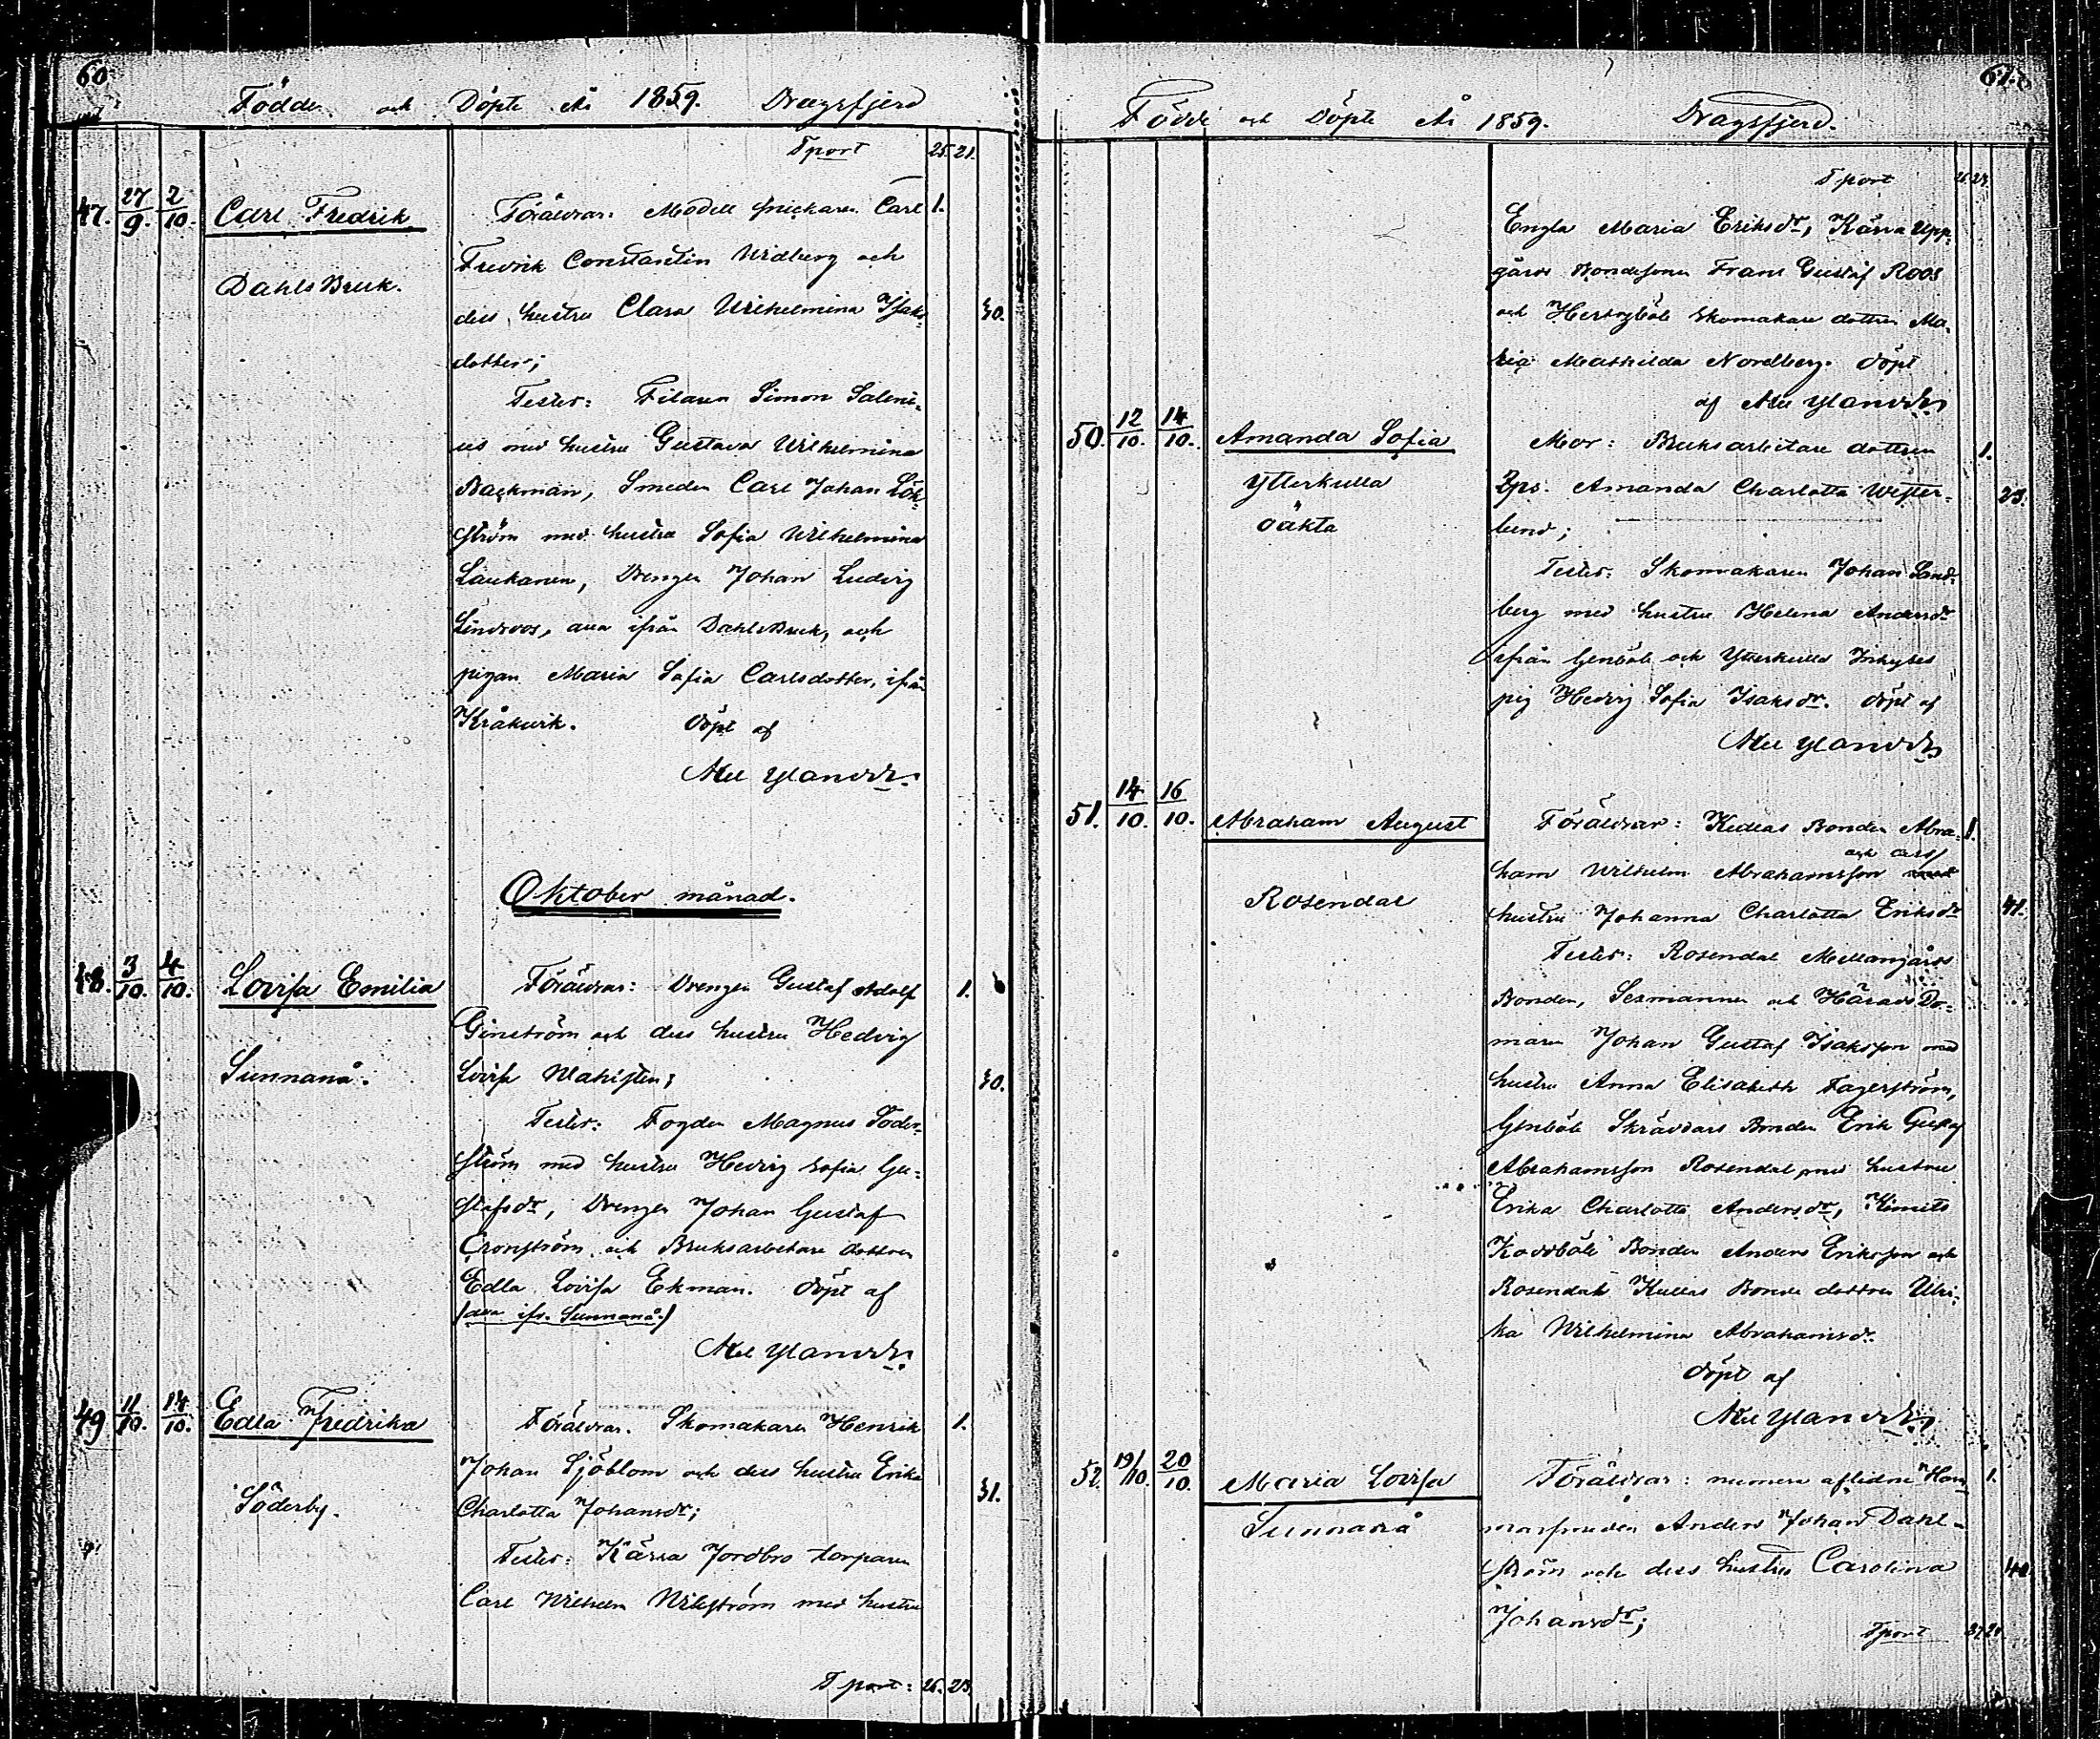 60
Födde och Döpte År 1859. Dragsfjerd
Tport 25. 21.
47. 27/9. 2/10. Carl Fredrik Föräldrar: Modell snickaren Carl 1.
Fredrik Constantin Widberg och
Dahls Bruk.
dess hustru Clara Wilhelmina Isaks- 30.
dotter;
Tester: Filaren Simon Saleni-
us med hustru Gustava Wilhelmina
Backman, Smeden Carl Johan Lök-
ström med hustru Sofia Wilhelmina
Laukanen, Drengen Johan Ludvig
Lindroos, alla ifrån Dahls Bruk, och
pigan Maria Sofia Carlsdotter, ifrån
Kråkvik. Döpt af
Axel Ylander.
Oktober månad.
48. 3/10. 4/10. Lovisa Emilia Föräldrar: Drengen Gustaf Adolf 1.
Ginström och dess hustru Hedvig
Sunnanå. Lovisa Wahlsten; 30.
Tester: Fogden Magnus Söder-
ström med hustru Hedvig Sofia Gu-
stafsdr, Drengen Johan Gustaf
Cronström och Bruksarbetare dottren
Edla Lovisa Ekman. Döpt af
(alla ifr. Sunnanå.)
Axel Ylander.
49 11/10. 14/10. Edla Fredrika Föräldrar. Skomakaren Henrik 1.
Johan Sjöblom och dess hustru Erika
Söderby. Charlotta Johansdr; 31.
Tester: Kärra Jordbro torparen
Carl Wilhelm Wilström med hustru
T port: 26. 23.
61.
Födde och Döpte År 1859. Dragsfjerd.
Tport 26. 23.
Engla Maria Eriksdr, Kärra Upp-
gårds Bondesonen Frans Gustaf Roos
och Hertsböle Skomakare dottren Ma-
ria Mathilda Nordberg. Döpt
af Axel Ylander
50. 12/10. 14/10. Amanda Sofia Mor: Bruksarbetare dottren 1.
Ytterkulla Pigs. Amanda Charlotta Wester- 23.
oäkta lund;
Tester: Skomakaren Johan Sand-
berg med hustru Helena Andersdr
ifrån Genböle och Ytterkulla Inhyses
pig Hedvig Sofia Isaksdr. Döpt af
Axel Ylander
51. 14/10. 16/10. Abraham August Föräldrar: Kullas Bonden Abra- 1.
och dess
ham Wilhelm Abrahamsson
Rosendal hustru Johanna Charlotta Eriksdr 41.
Tester: Rosendal Mellangårds
Bonden, Sexmannen och Härads Do-
maren Johan Gustaf Isaksson med
hustru Anna Elisabeth Fagerström,
Genböle Skräddars Bonden Erik Gustaf
Abrahamsson Rosendal med hustru
Erika Charlotta Andersdr, Kimito
Koddböle Bonden Anders Eriksson och
Rosendal Kullas Bonde dottren Ulri-
ka Wilhelmina Abrahamsdr.
Döpt af
Axel Ylander
52. 19/10. 20/10. Maria Lovisa Föräldrar: numera aflidne Ham- 1.
Sunnanå marsmeden Anders Johan Dahl-
ström och dess hustru Carolina 40
Johansdr;
Tport 27. 24